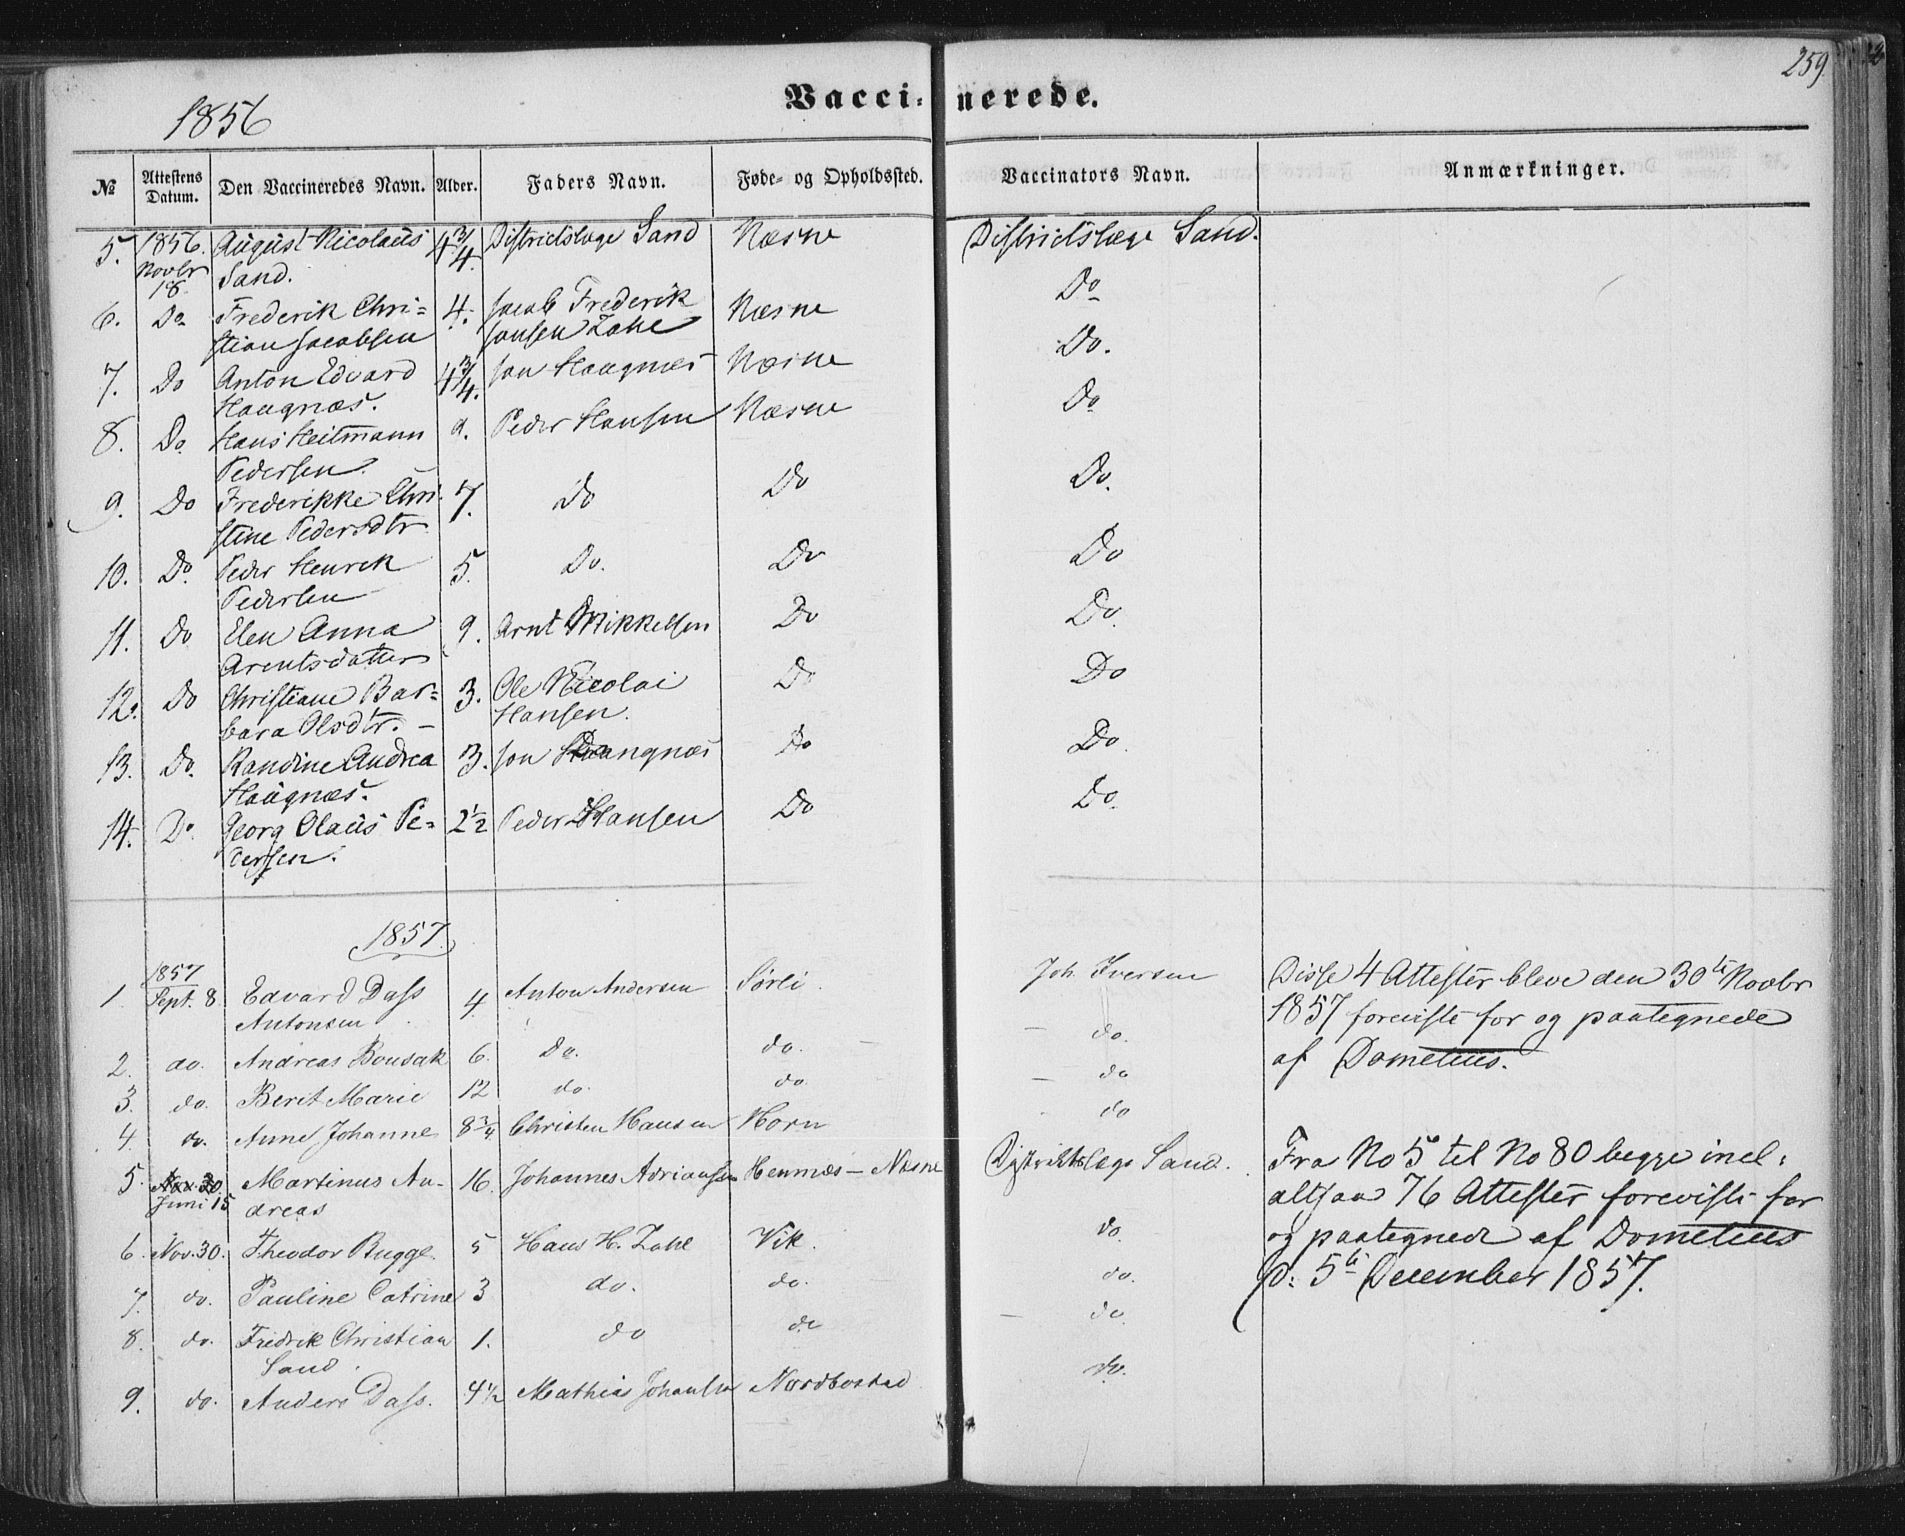 259
1856
Vaccinerede.
№ Attestens Datum. Den Vaccineredes Navn. Alder. Faders Navn. Føde- og Opholdssted. Vaccinators Navn. Anmærkninger.
5. 1856. Novbr 18. August Nicolaus Sand. 4 3/4. Districtslæge Sand Næsne Districtslæge Sand.
6. Do Frederik Chri= stian Jacobsen 4. Jacob Frederik Jansen Zahl Næsne Do
7. Do Anton Edvard Haugnæs. 4 3/4. Jon Haugnæs Næsne Do.
8. Do Hans Heitmann Pedersen. 9. Peder Hansen Næsne Do
9. Do Frederikke Chri- stine Pedersdtr 7. Do Do Do.
10. Do. Peder Henrik Pedersen 5. Do. Do Do
11. Do Elen Anna Arentsdatter 9. Arnt Mikkelsen Do Do.
12. Do Christiane Bar= bara Olsdtr. – 3. Ole Nicolai Hansen. Do Do
13. Do. Randine Andrea Haugnæs. 3. Jon Haangnæs Do Do.
14. Do. Georg Olaus Pe= dersen. 2 1/2 Peder Hansen Do Do.
1857.
1. 1857 Sept. 8. Edvard Dass Antonsen 4. Anton Andersen Sörli. Joh. Iversen
2. do. Andreas Bonsak 6. Do. do. – do.
3. do. Berit Marie 12 do. do. – do
4. do. Anne Johanne 8 3/4 Christen Hansen Horn do
Disse 4 Attester bleve den 30te Novbr
1857 foreviste for og paategnede
af Dometius.
5. Nov. 30. Juni 15 Martinus An- dreas 16. Johannes Adriansen Hennæs – Næsne Distriktslæge Sand.
6. Nov. 30. Theodor Bugge. 5 Hans H. Zahl Vik. do.
7. do. Pauline Catrine 3 do. do. do.
8. do. Fredrik Christian Sand. 1. do do – do.
9. do. Anders Dass. 4 1/2 Mathias Johansen Nordbostad do.
Fra No 5 til No 80 begge incl.
altsaa 76 Attester foreviste for
og paategnede af Dometius
d: 5te December 1857.